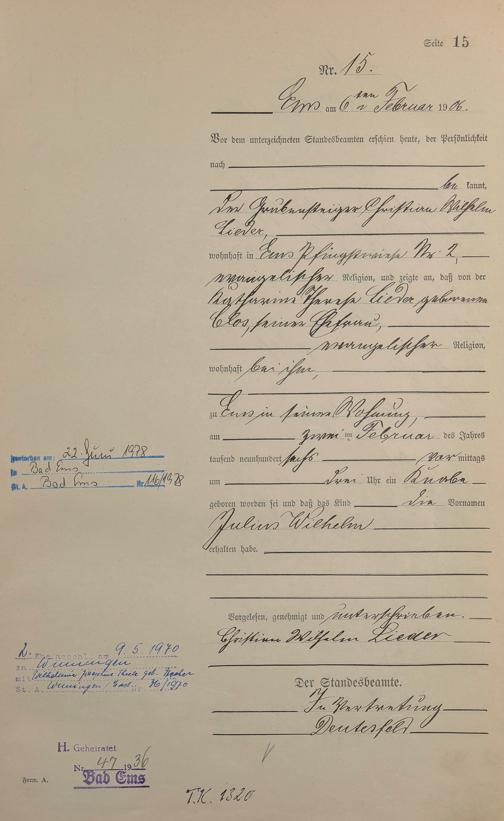 Seite 15
Nr. 15.
Ems am 6ten Februar 1906.
Vor dem unterzeichneten Standesbeamten erschien heute, der Persönlichkeit
nach
be kannt,
der Grubensteiger Christian Wilhelm
Lieder,
wohnhaft in Ems Pfingstwiese Nr 2,
evangelischer Religion, und zeigte an, daß von der
Katharine Therese Lieder, geborenen
Clos, seiner Ehefrau,
evangelischer Religion,
wohnhaft bei ihm,
zu Ems in seiner Wohnung,
am zwei ten Februar des Jahres
tausend neunhundert sechs vor mittags
um drei Uhr ein Knabe
geboren worden sei und daß das Kind die Vornamen
Julius Wilhelm
erhalten habe.
Vorgelesen, genehmigt und unterschrieben.
Christian Wilhelm Lieder
Der Standesbeamte.
In Vertretung
Deutesfeld
Gestorben am: 22. Juni 1978
in Bad Ems
St. A. Bad Ems Nr. 116/1978
2. Eheschl. am 9.5.1970
in Winningen
mit Wilhelmine geb.
St. A. Winningen Nr. /1970
H. Geheiratet
Nr. 47 1936
Bad Ems
Form. A.
T.K. 1320